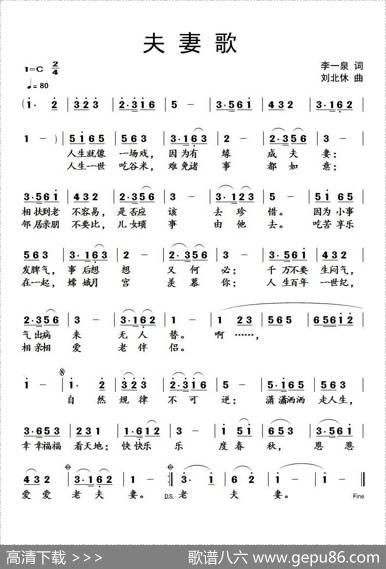 夫妻歌
1=C 2/4
♩=80
李一泉 词
刘北休 曲
(i· 2 | 3 2 3 | 2·3 1 6 | 5 - | 3·5 6 1 | 4 3 2 | 3·1 6 2 |
1 - ) | 5 1 6 5 | 5 6 3 | 2·3 5 6 | 1 2 | 2·3 5 6 | 3 - |
人生就像 一场戏， 因为有 缘 成夫 妻；
人生一世 吃谷米， 难免诸 事 都如 意；
3·5 6 1 | 4 3 2 | 2·3 5 6 | 3 2 | 3·1 6 2 | 1 - | 5 1 6 5 |
相扶到老 不容易， 是否应 该 去珍 惜。 因为小事
邻居亲朋 不要比， 儿女琐 事 由他 去。 吃苦享乐
5 6 3 | 2·3 5 6 | 1 2 | 2·3 5 6 | 3 - | 3·5 6 1 | 5 6 3 |
发脾气， 事后想 想 又何 必； 千万不要 生闷气，
在一起， 嫦娥月 宫 羡慕 你； 人生百年 一世纪，
2·3 5 6 | 3 2 | 3·1 6 2 | 1 - | 1 2 3 | 5 6 5 | 6 5 6 1 2 |
气出病 来 无人 替。 啊……，
相亲相 爱 老伴 侣。
i - | i· 2 | 3 2 3 | 2·3 1 6 | 5 - | 5·1 6 5 | 5 6 3 |
自 然 规 律 不 可 逆； 潇洒洒 走人生，
3·6 5 3 | 2 3 1 | 1·6 1 2 | 3 - | 5·6 5 3 | 2 - | 5 3 |
幸幸福福 看天地； 快快乐 乐 度春 秋， 恩 恩
4 3 2 | 3·1 6 2 | 1 - | 2 - | 3·1 6 6 | 1 - | 1 - |
爱爱 老夫 妻。 D.S. 老 夫 妻。 Fine
高清下载 >>>
歌谱八六 www.gepu86.com